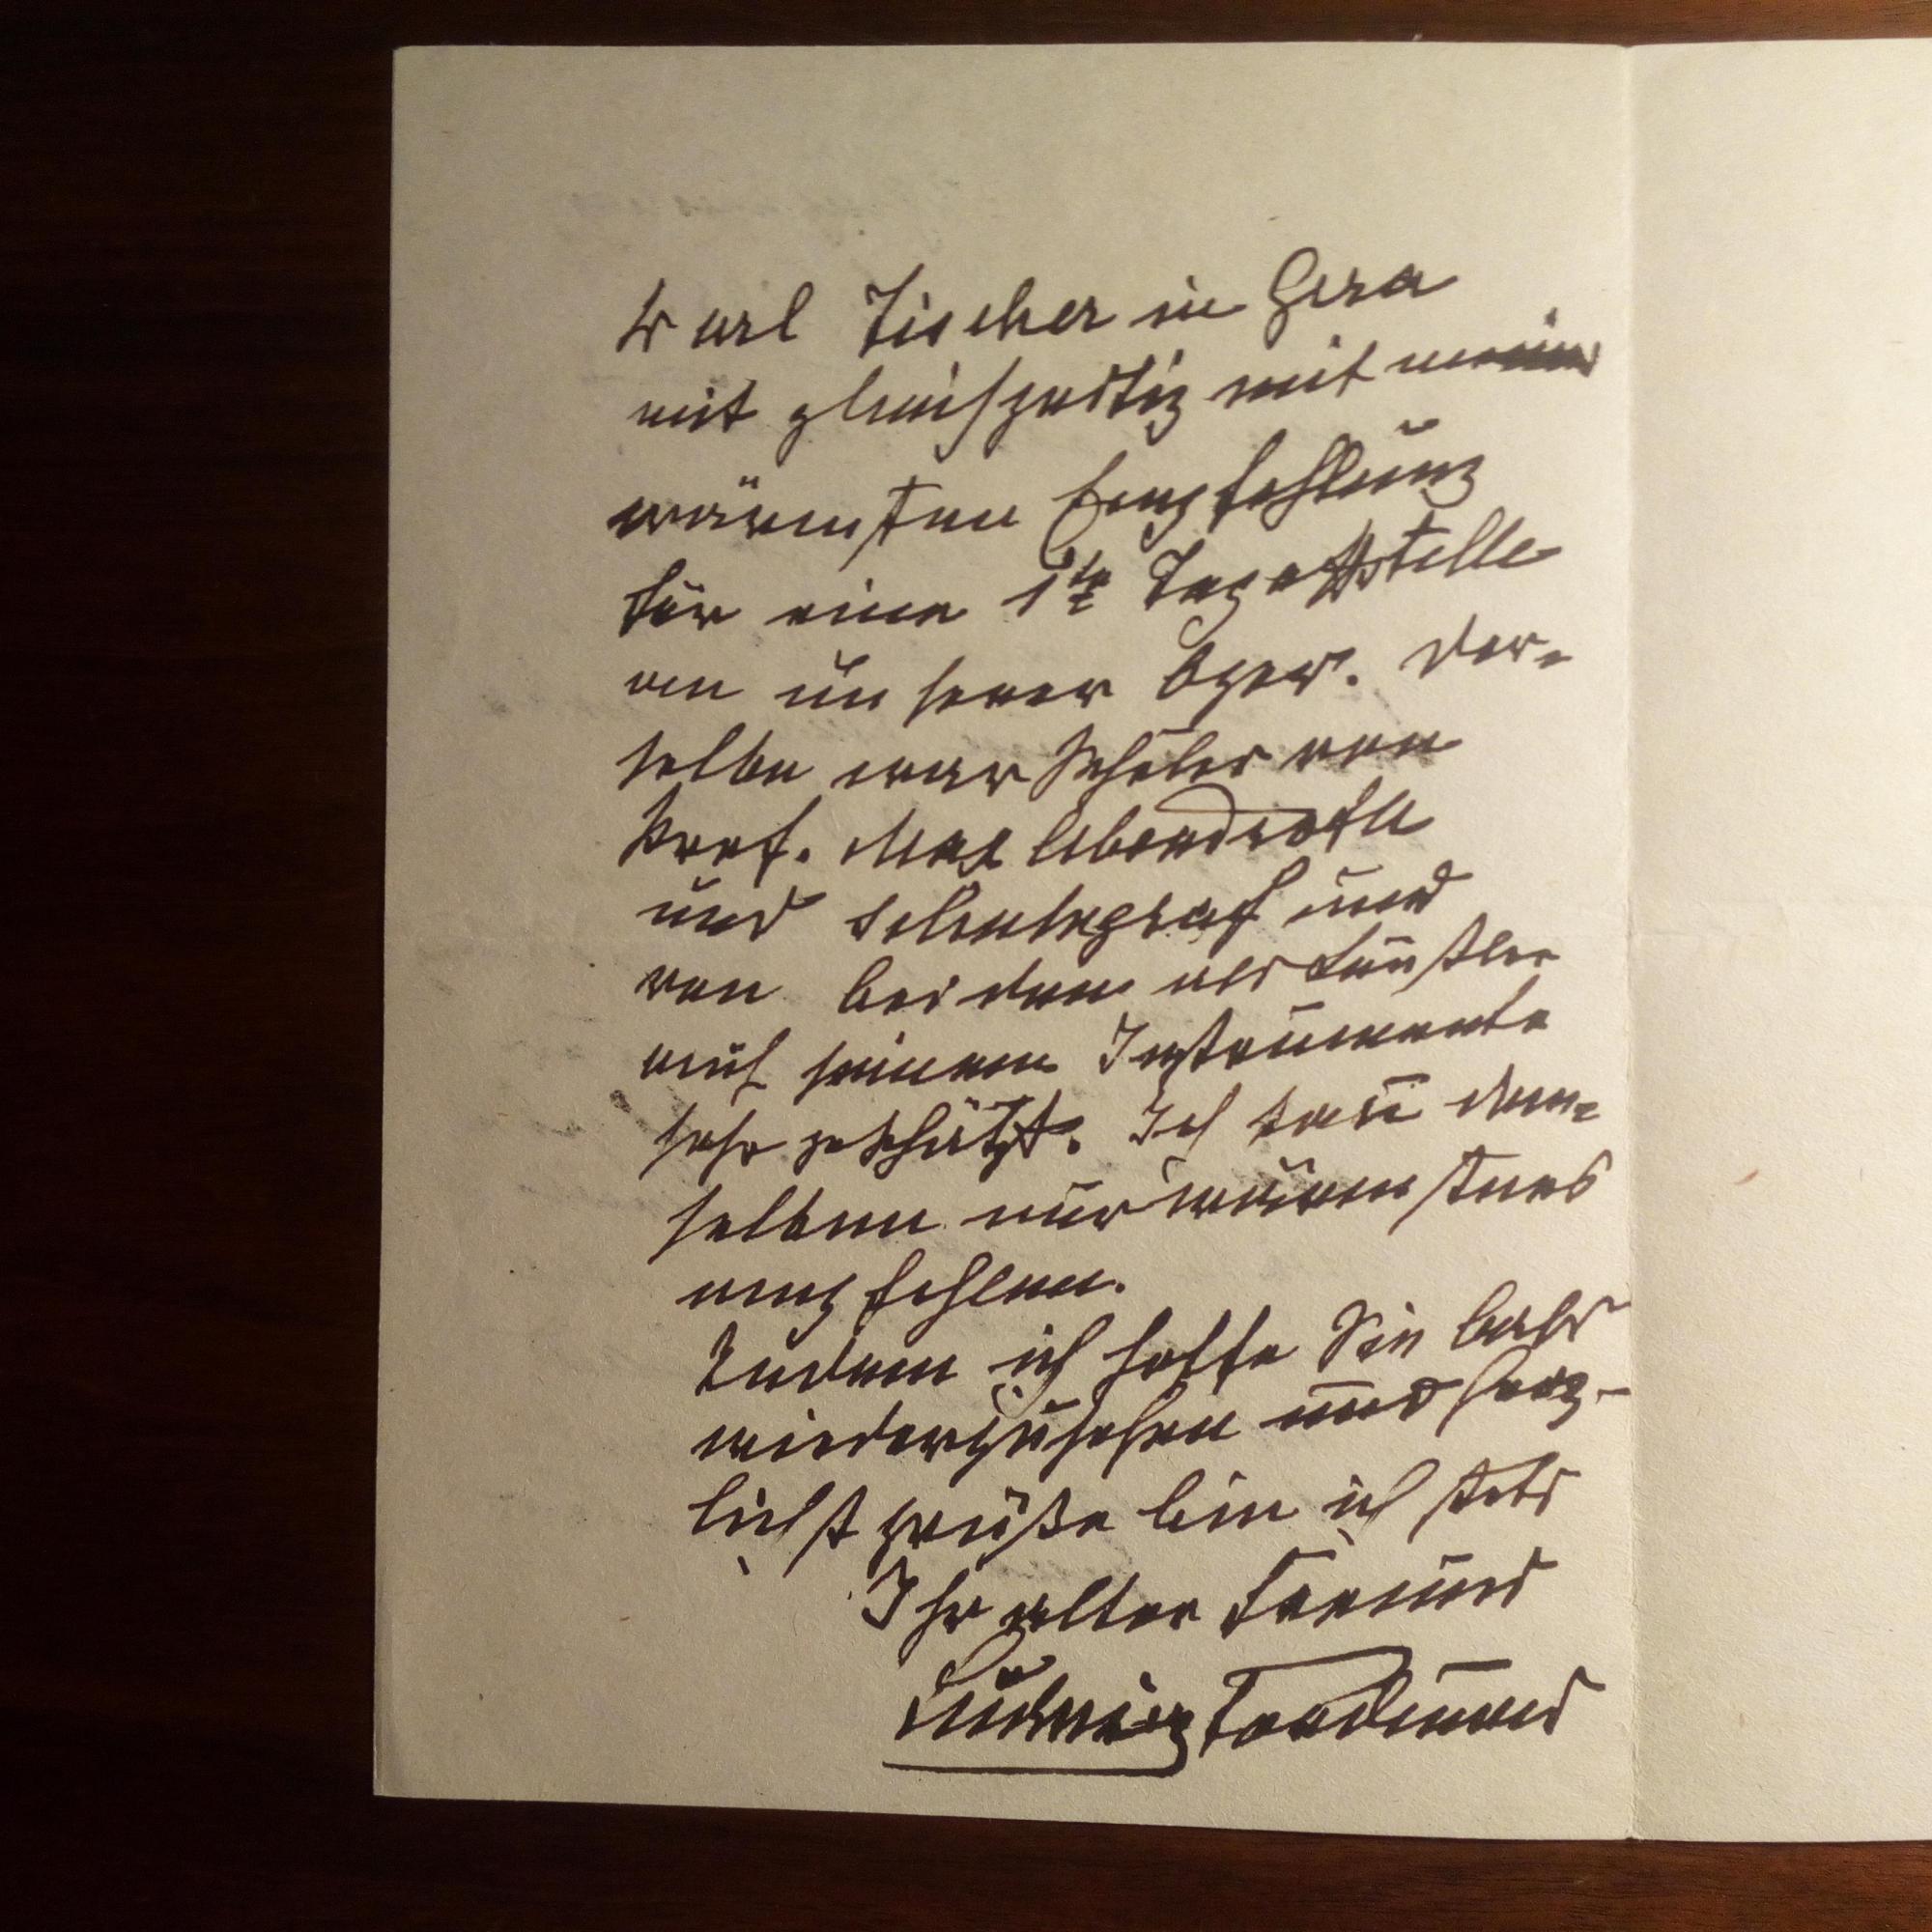 Karl Fischer in Gera
mit gleichzeitig mit
wärmsten Empfehlung
für eine 1te Fagottstelle
an unserer Oper. Der-
selbe war Schüler von
Prof. Max Abendroth
und und
von beiden als Künstler
auf seinem Instrumente
sehr geschätzt. Ich kan̄ dem-
selben nur wärmstens
empfehlen.
Indem ich hoffe Sie bald
wiederzusehen und herz-
lichst grüße bin ich stets
Ihr alter Freund
Ludwig